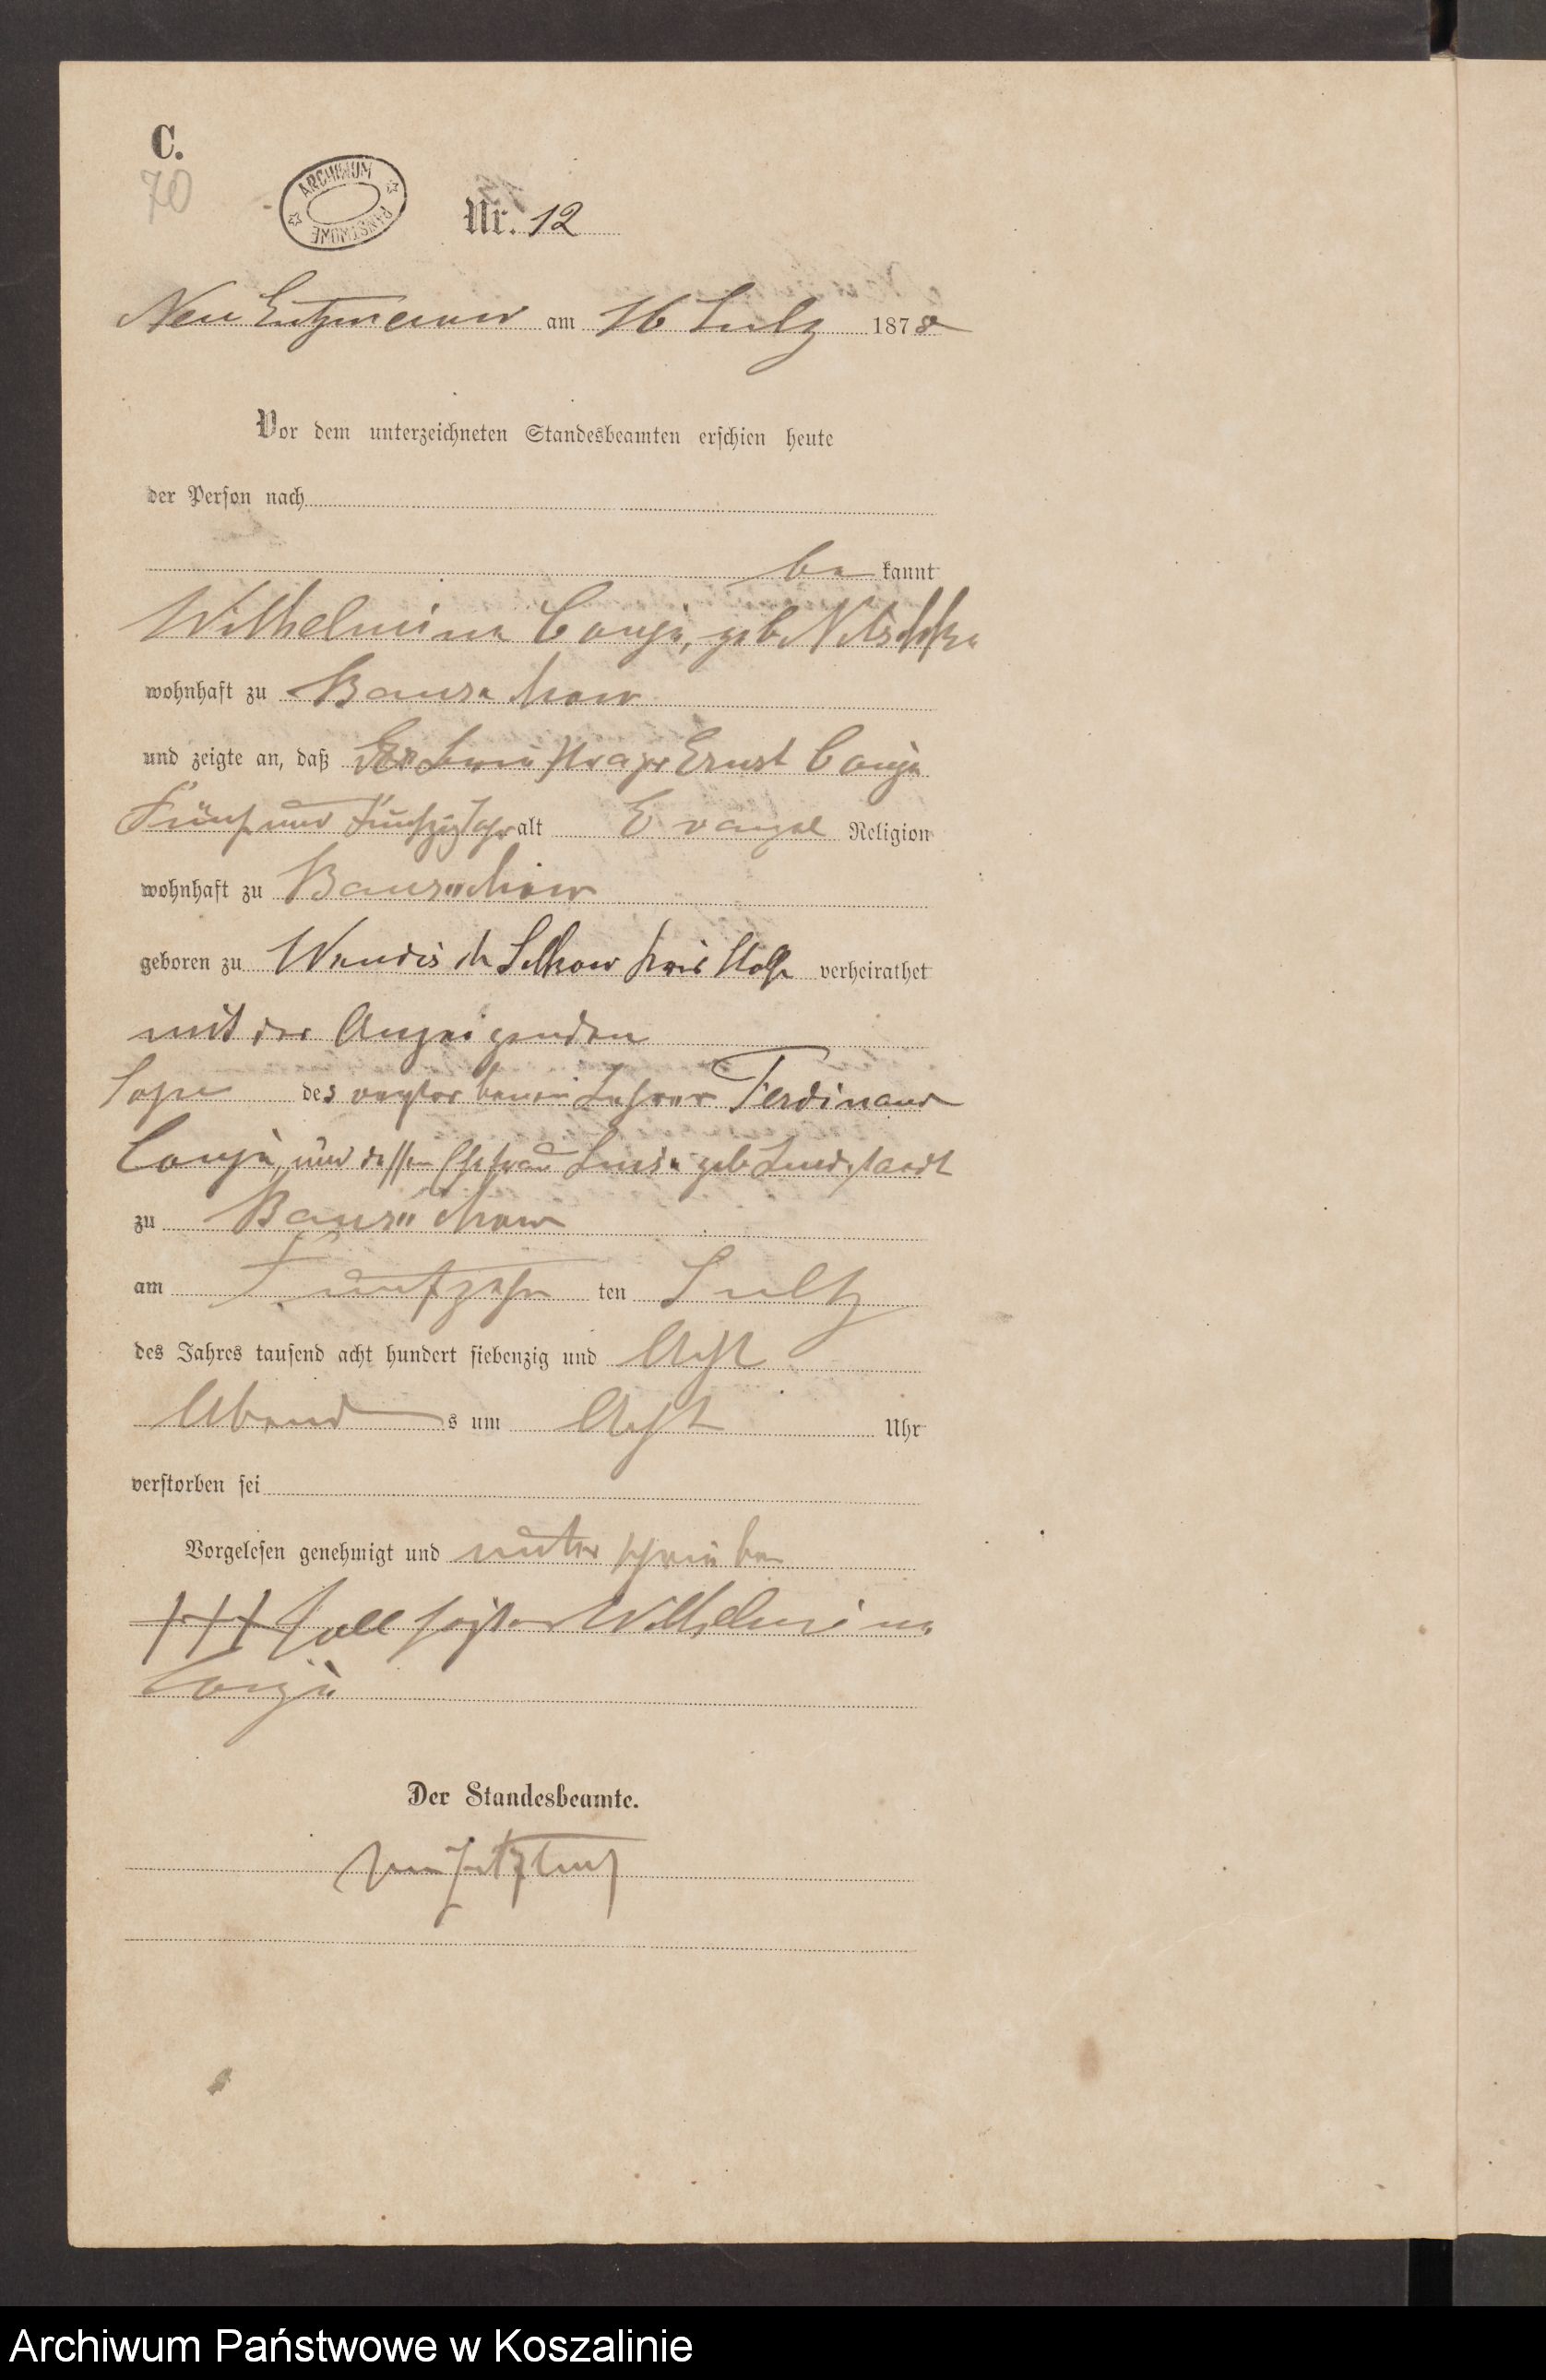 C.
70
ARCHIWUM PAŃSTWOWE
Nr. 12
Neu am 16 Julÿ 1878
Vor dem unterzeichneten Standesbeamten erschien heute
der Person nach
be kannt
Wilhelmine Conje, geb.
wohnhaft zu
und zeigte an, daß Ernst Conje
Fünf und Funfzig Jahr alt Evangel Religion
wohnhaft zu
geboren zu Wendisch Silkow Kreis Stolp verheirathet
mit der Anzeigenden
Sohn des verstorbenen Lehrer Ferdinand
Conje, und dessen Ehefrau Luise geb.
zu
am Funfzehn ten Julÿ
des Jahres tausend acht hundert siebenzig und Acht
Abend s um Acht Uhr
verstorben sei
Vorgelesen genehmigt und unterschrieben
+++ soll heißen Wilhelmine
Conje
Der Standesbeamte.
Archiwum Państwowe w Koszalinie